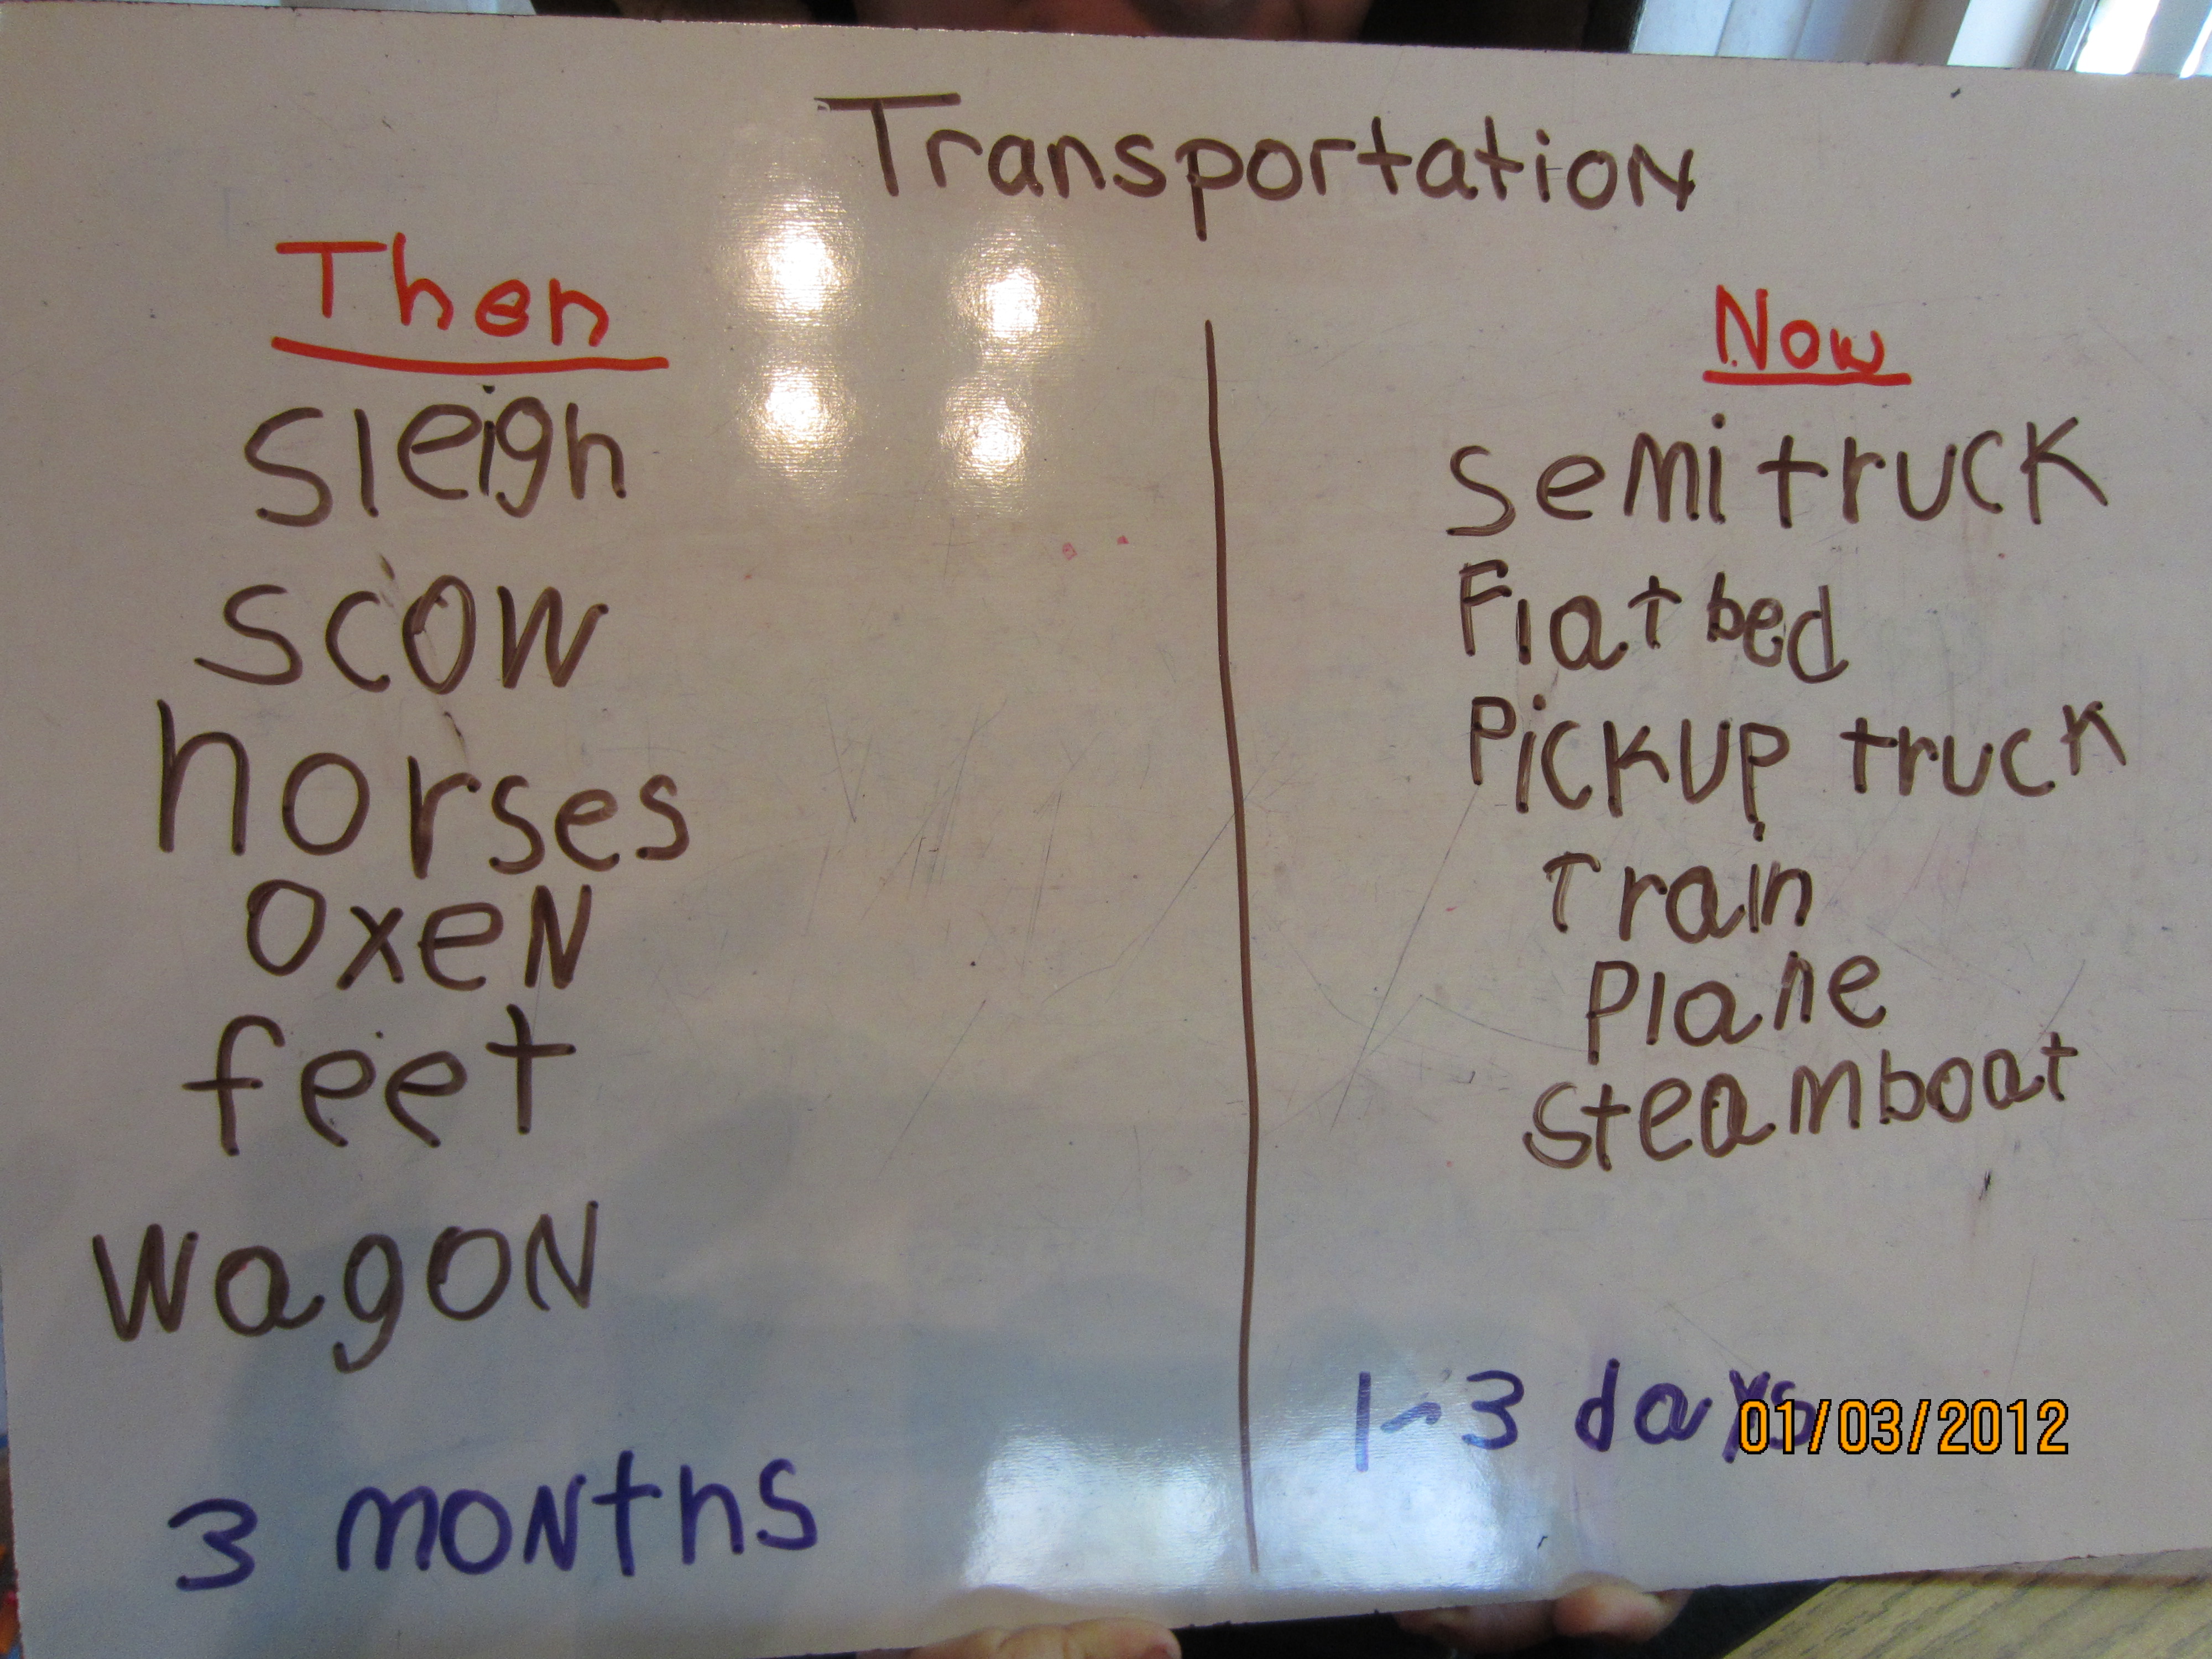 Transportation
Then
sleigh
scow
horses
oxen
feet
wagon
3 months
Now
semi truck
Flat bed
Pickup truck
Train
Plane
steamboat
1-3 days
01/03/2012